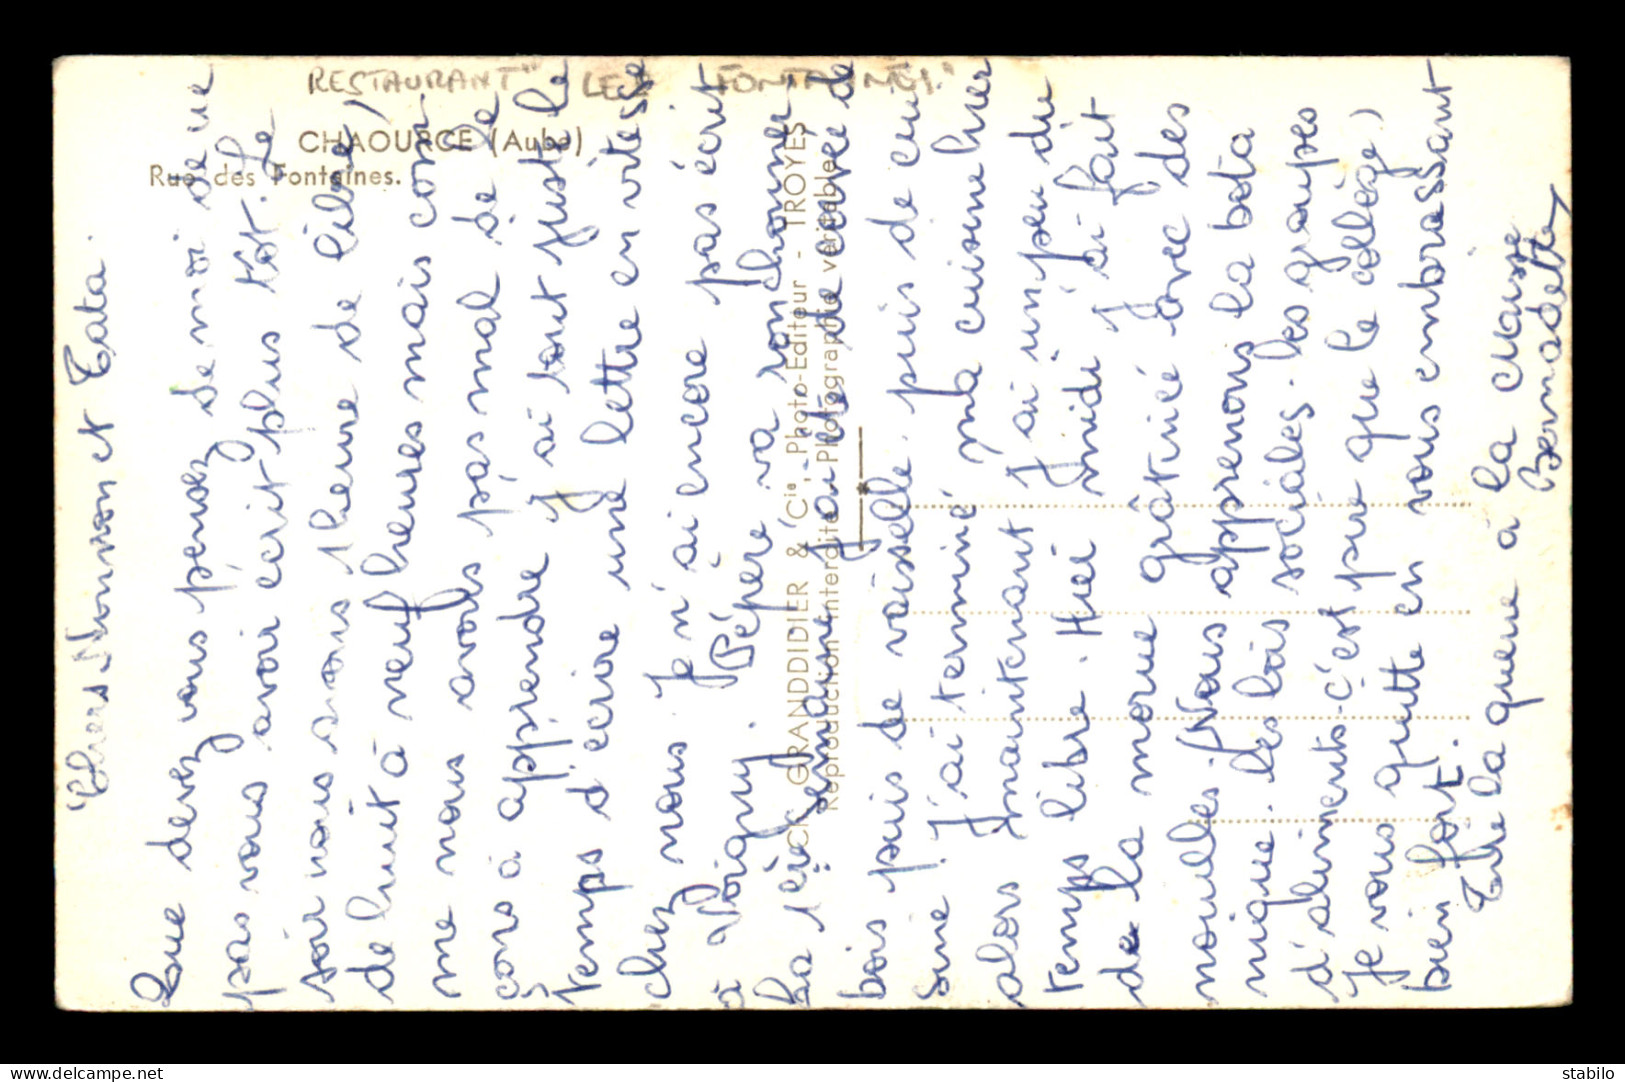 RESTAURANT "LES FONTAINES."
CHAOURCE (Aube)
Rue des Fontaines.
Chers Nonnon et Tata.
Que devez vous penser de moi de ne
pas vous avoir écrit plus tôt. Le
soir nous avons 1 heure de libre
de huit à neuf heures mais com
me nous avons pas mal de le
çons à apprendre j'ai tout juste le
temps d'écrire une lettre en vitesse
chez nous. Je n'ai encore pas écrit
à Poigny. Pépère va ronchonner
La 1ère semaine j'ai été de corvée de
bois puis de vaisselle puis de cui
sine. J'ai terminé ma cuisine hier
alors maintenant j'ai un peu de
temps libre. Hier midi j'ai fait
de la morue grâtiné avec des
nouilles. Nous apprenons la bota
nique. les lois sociales. les groupes
d'aliments. c'est pire que le collège!
Je vous quitte en vous embrassant
bien fort.
Tire la queue à la chasse
Bernadette
CK. GRANDDIDIER & Cie, Photo-Editeur - TROYES
Reproduction interdite Photographie véritable
delcampe.net
stabilo